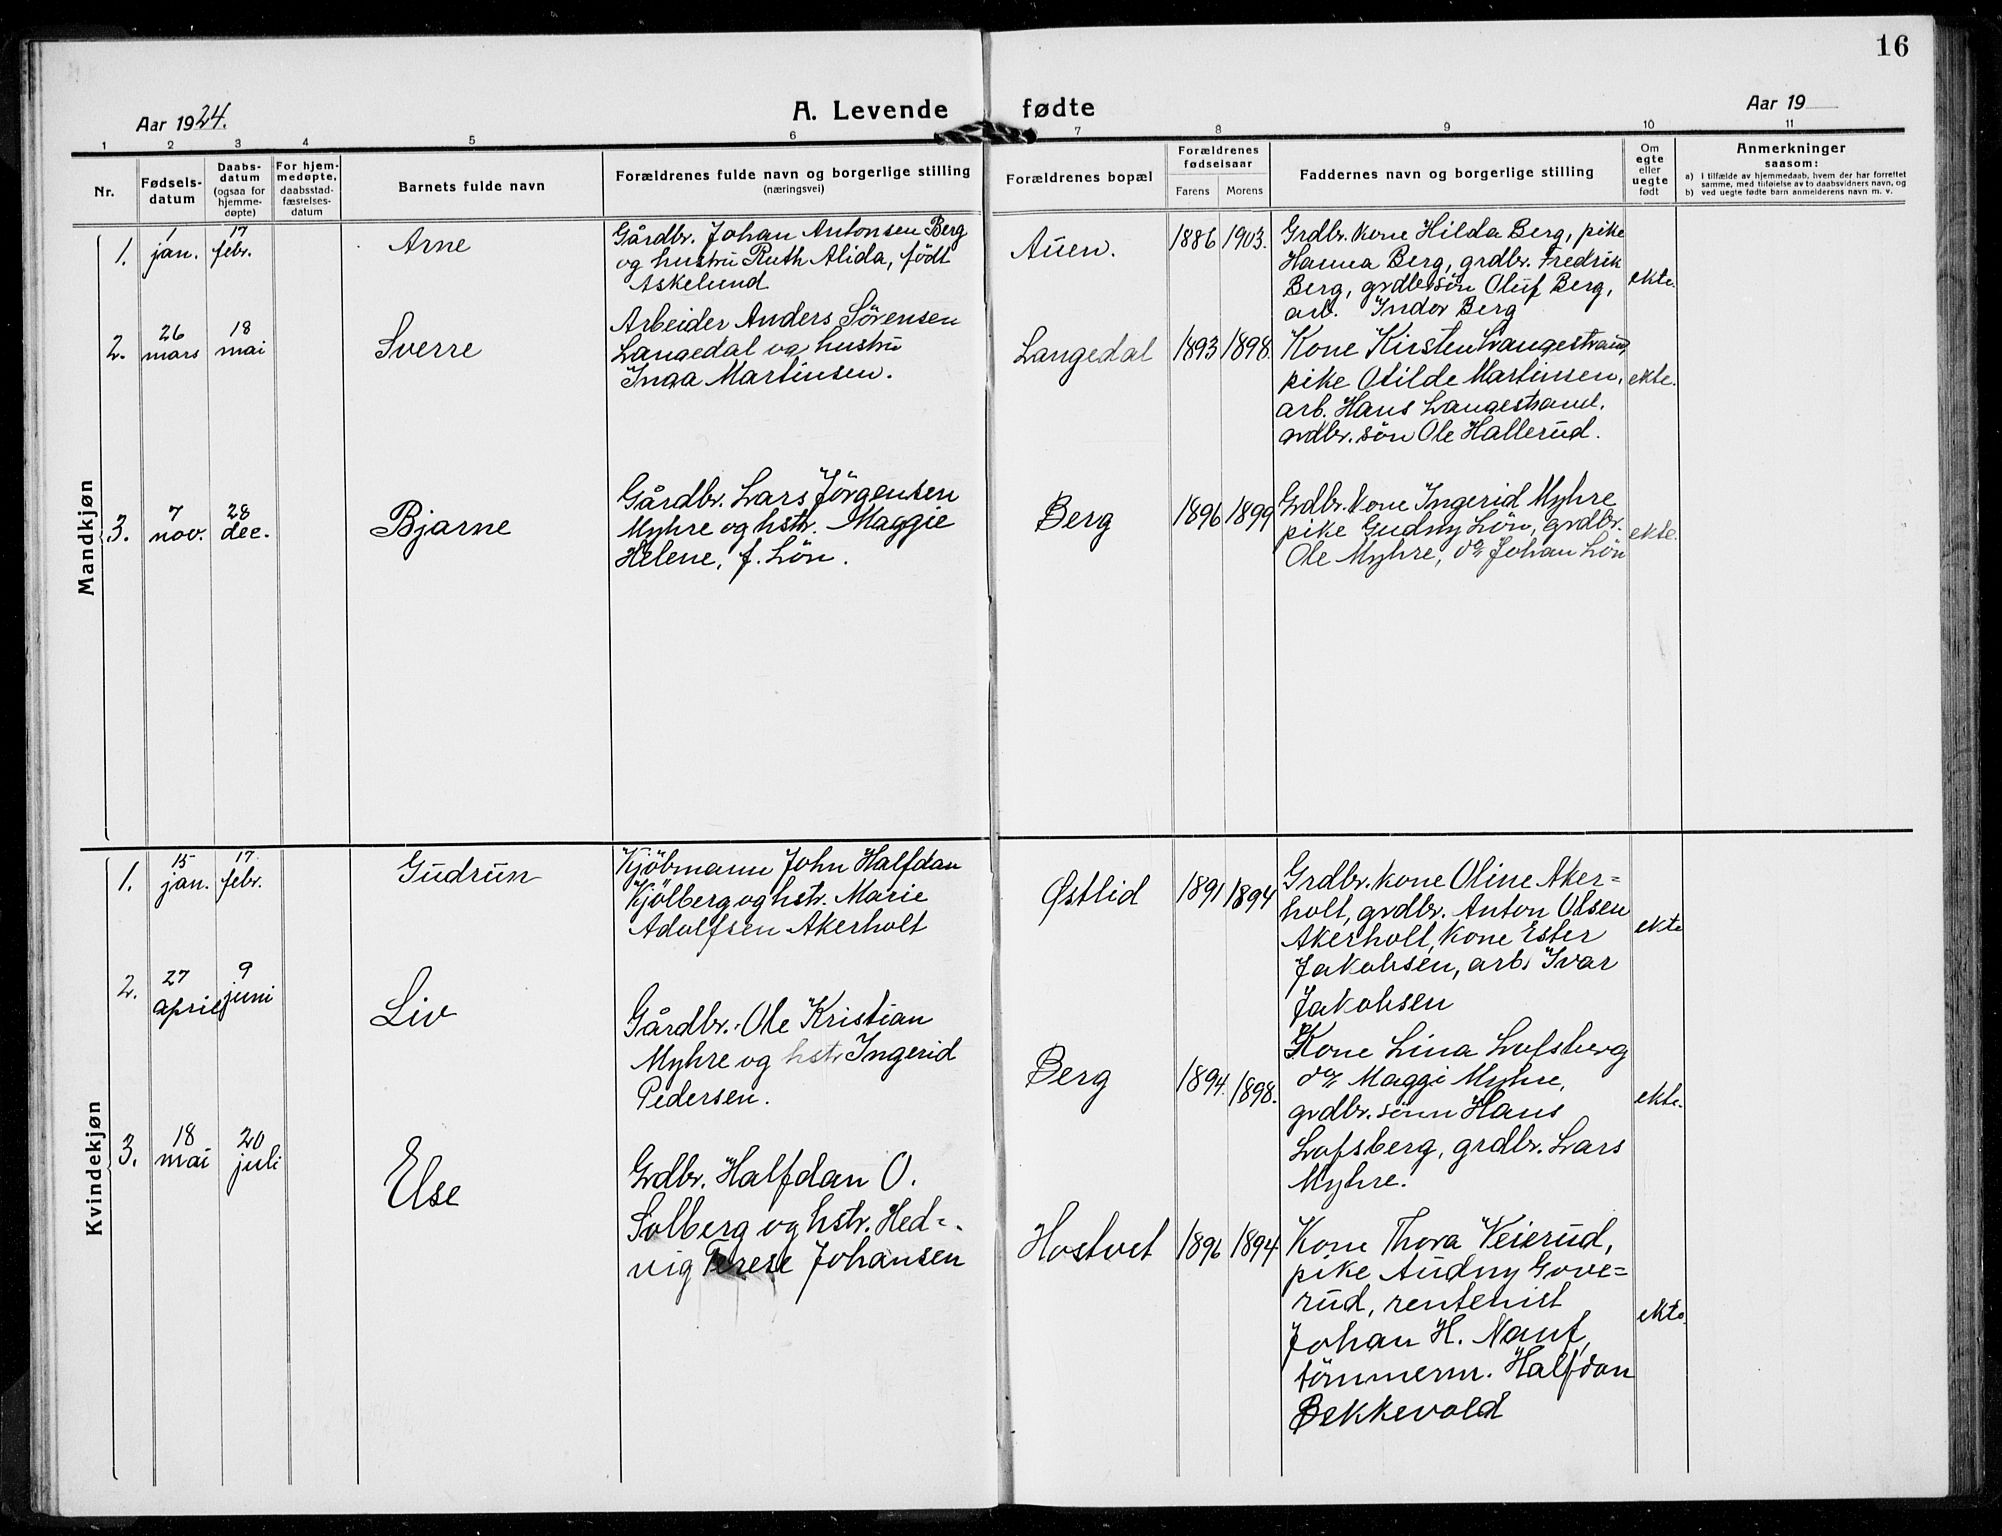 16
Aar 1924.
A. Levende fødte
Aar 19
1 2 3 4 5 6 7 8 9 10 11
Nr.
Fødsels-
datum
Daabs-
datum
(ogsaa for
hjemme-
døpte)
For hjem-
medøpte,
daabsstad-
fæstelses-
datum
Barnets fulde navn
Forældrenes fulde navn og borgerlige stilling
(næringsvei)
Forældrenes bopæl
Forældrenes
fødselsaar
Farens Morens
Faddernes navn og borgerlige stilling
Om
egte
eller
uegte
født
Anmerkninger
saasom:
a) I tilfælde av hjemmedaab, hvem der har forrettet
samme, med tilføielse av to daabsvidners navn, og
b) ved uegte fødte barn anmelderens navn m. v.
Mandkjøn
1.
1
jan.
17
febr.
Arne
Gårdbr. Johan Antonsen Berg
og hustru Ruth Alida, født
Askelund
Auen.
1886 1903.
Grdbr. kone Hilda Berg, pike
Hanna Berg, grdbr. Fredrik
Berg, grdbrsön Oluf Berg,
arb. Indor Berg
ekte.
2.
26
mars
18
mai
Sverre
Arbeider Anders Sörensen
Langedal og hustru
Inga Martinsen.
Langedal
1893 1898.
Kone Kirsten Langestrand,
pike Otilde Martinsen,
arb. Hans Langestrand.
grdbr. sön Ole Hallerud.
ekte.
3.
7
nov.
28
dec.
Bjarne
Gårdbr. Lars Jörgensen
Myhre og hstr. Maggie
Helene, f. Lön.
Berg
1896 1899
Grdbr. kone Ingerid Myhre
pike Gudny Lön, grdbr.
Ole Myhre, do Johan Lön
ekte.
Kvindekjøn
1.
15
jan.
17
febr.
Gudrun
Kjöbmann John Halfdan
Kjölberg og hstr. Marie
Adolfsen Akerholt
Østlid
1891 1894
Grdbr. kone Oline Aker=
holt, grdbr. Anton Olsen
Akerholt, kone Ester
Jakobsen, arb. Ivar
Jakobsen
ekte
2.
27
april
9
juni
Liv
Gårdbr. Ole Kristian
Myhre og hstr Ingerid
Pedersen.
Berg
1894. 1898.
Kone Lina Lofsberg
do Maggi Myhre,
grdbr. sönn Hans
Lofsberg, grdbr. Lars
Myhre.
ekte.
3.
18
mai
20
juli
Else
Grdbr. Halfdan O.
Solberg og hstr. Hed=
vig Terese Johansen
Hostvet
1896 1894
Kone Thora Veierud,
pike Audny Gove=
rud, rentenist
Johan H. Nauf,
tömmerm. Halfdan
Bekkevold
ekte.